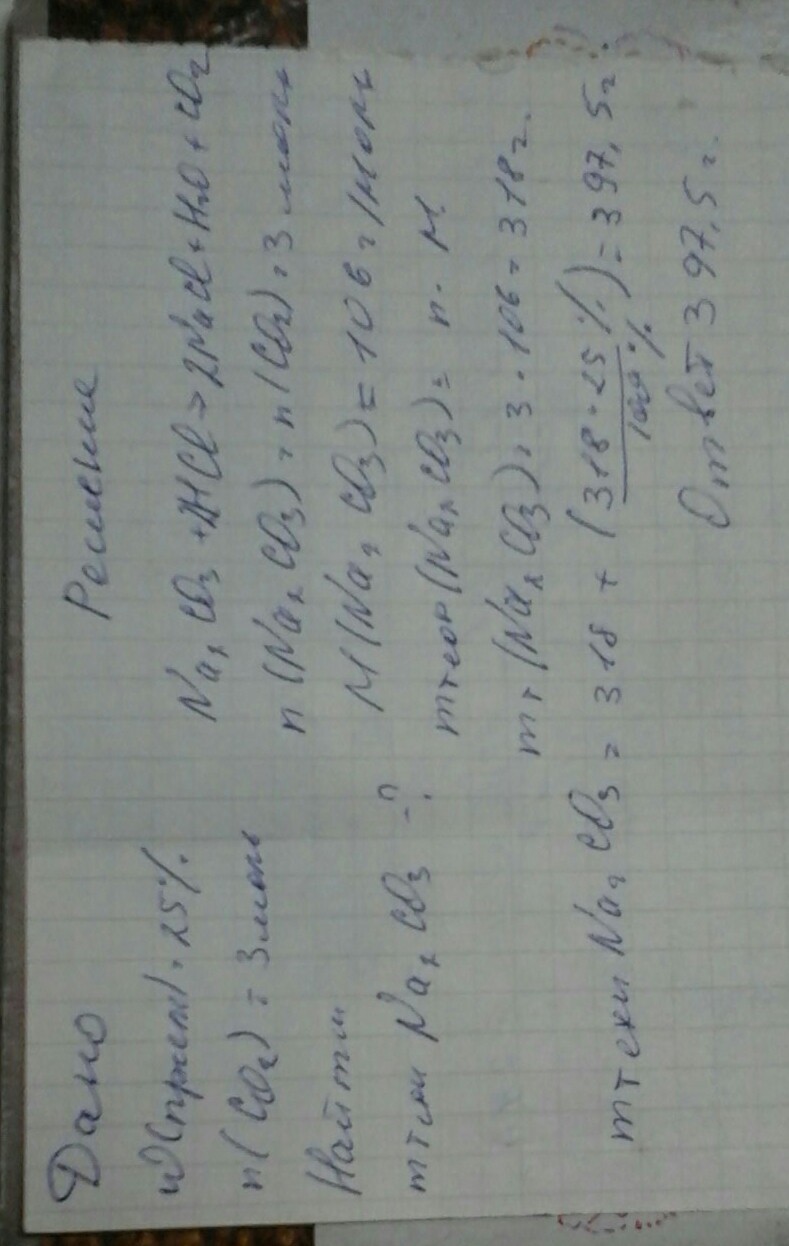 Дано
W(прием) = 25%
n(CO2) = 3 моль
Найти
mтехн Na2CO3 - ?
Решение
Na2CO3 + 2HCl → 2NaCl + H2O + CO2
n(Na2CO3) = n(CO2) = 3 моль
M(Na2CO3) = 106 г/моль
mтеор(Na2CO3) = n · M
mт(Na2CO3) = 3 · 106 = 318 г.
mтехн Na2CO3 = 318 + (318 · 25% / 100%) = 397,5 г.
Ответ 397,5 г.